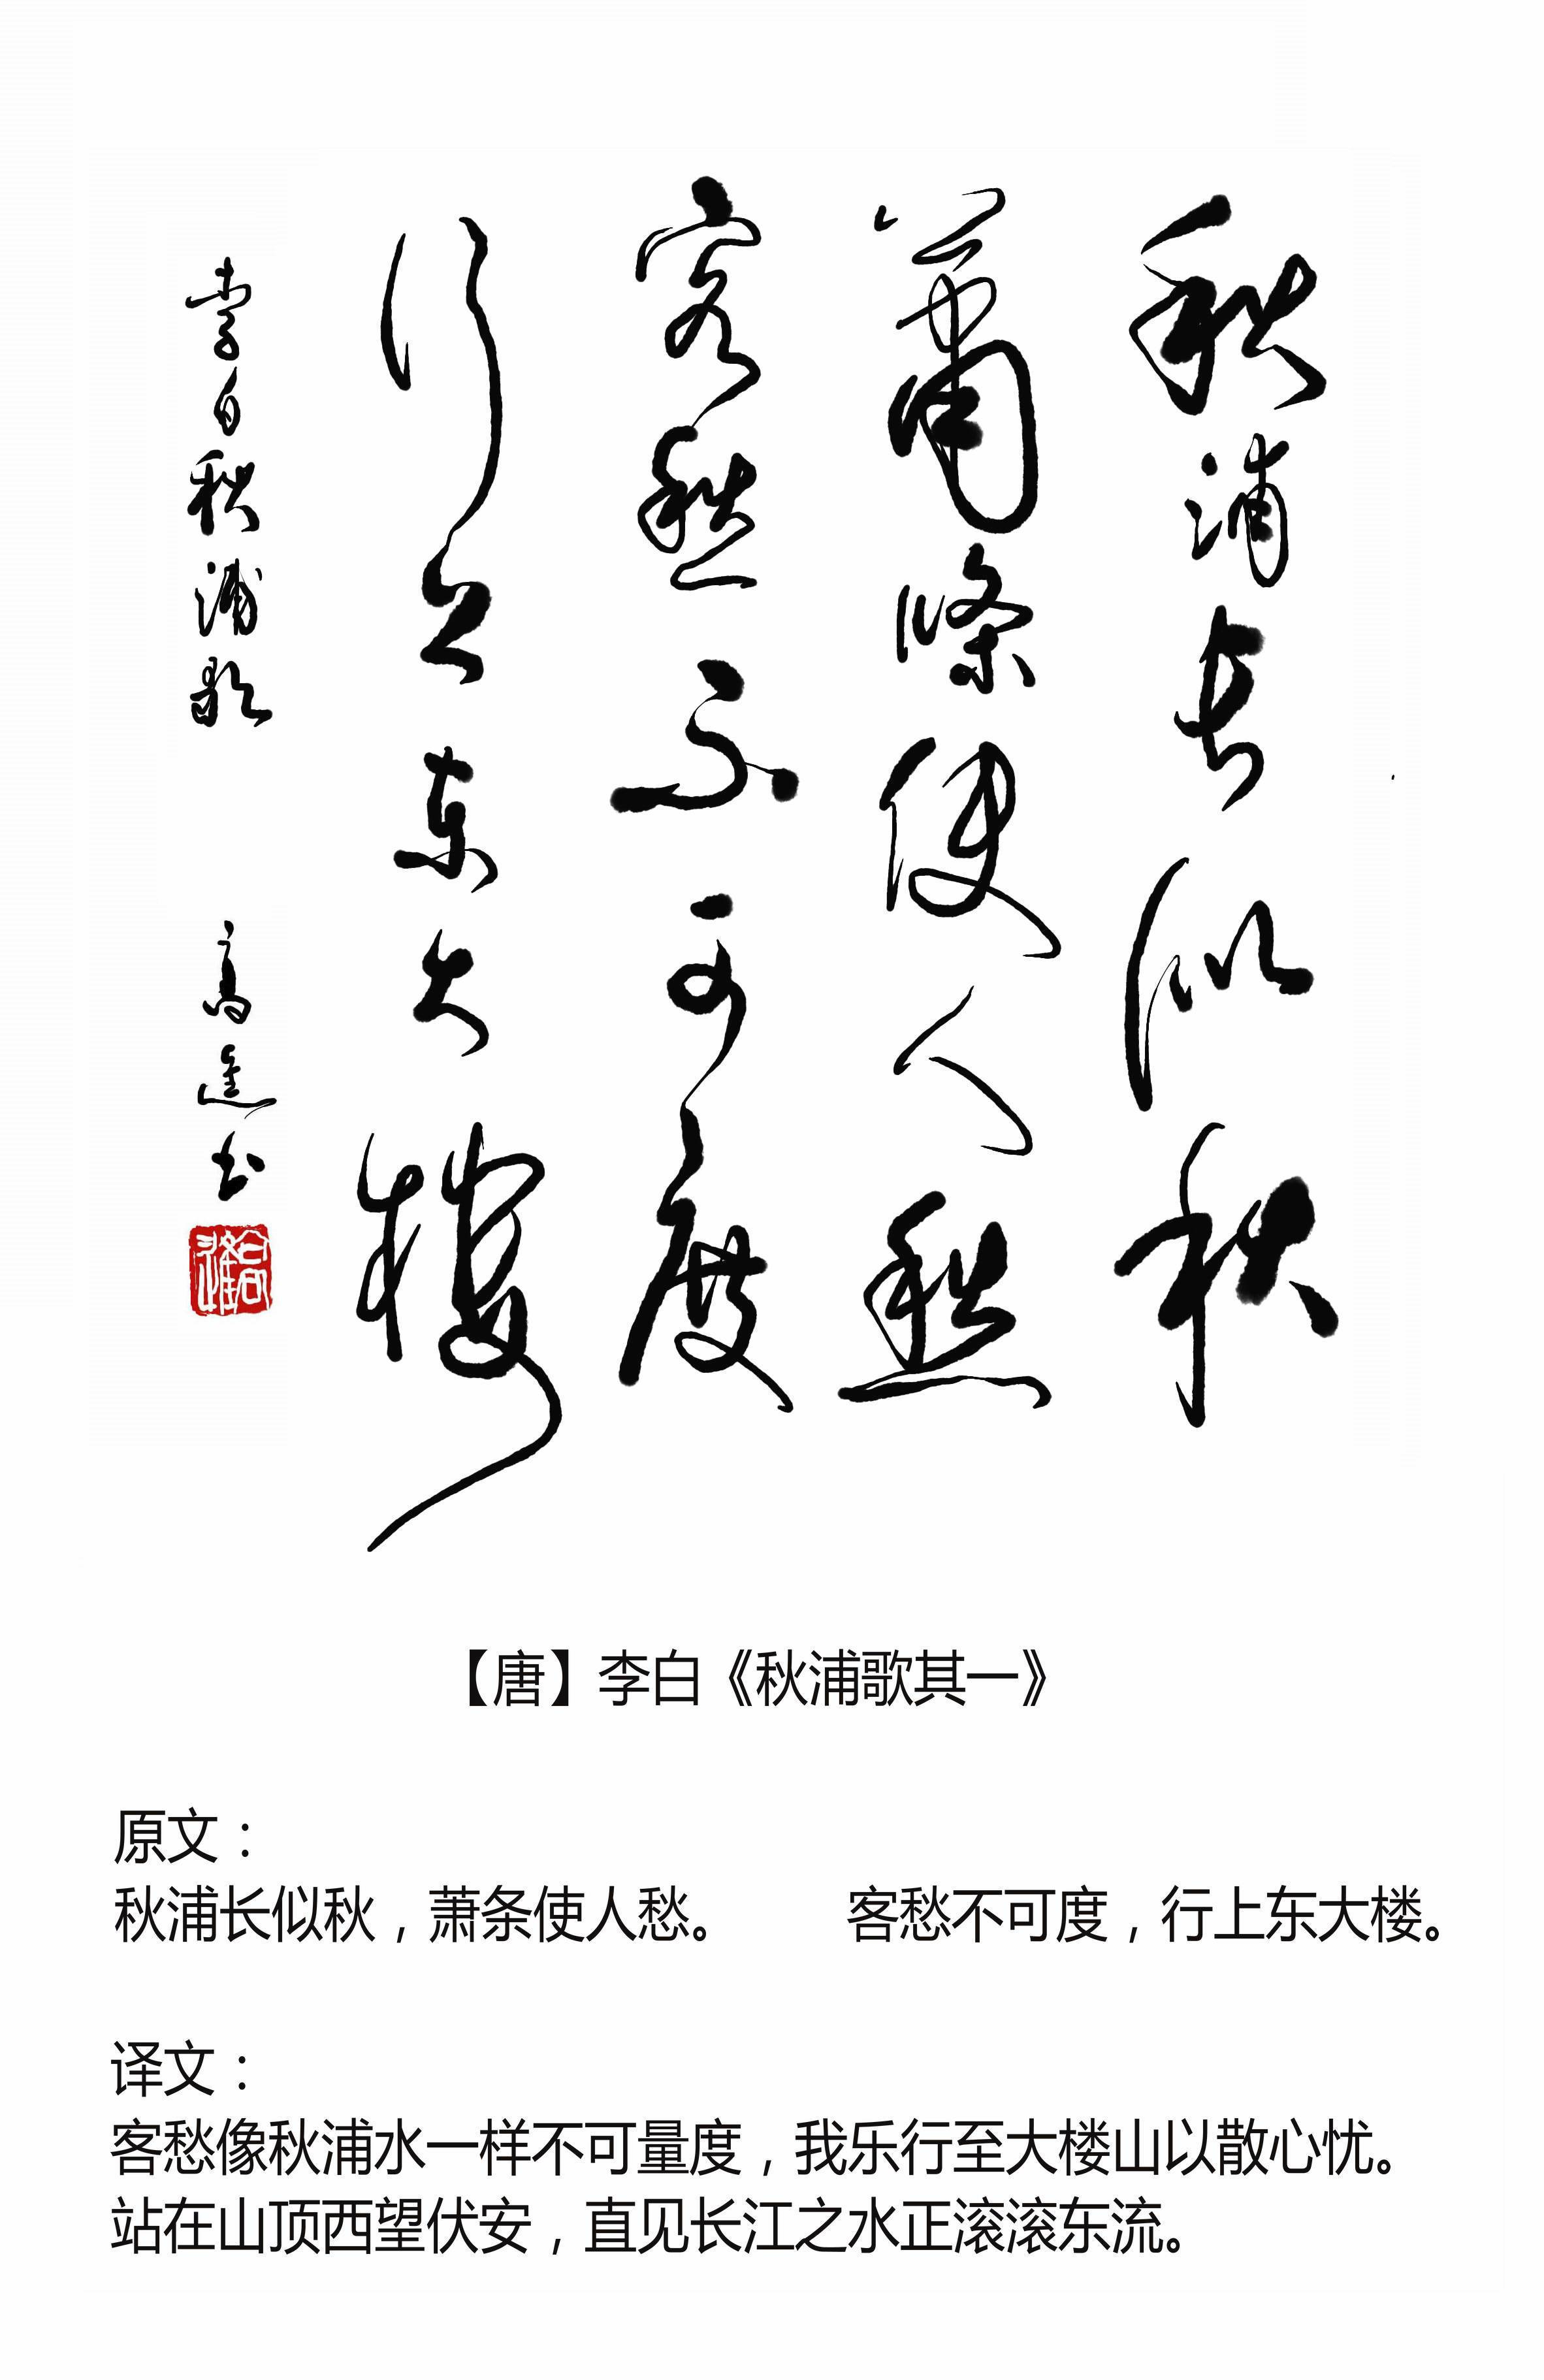 秋浦长似秋
萧條使人愁
客愁不可度
行上东大楼
李白秋浦歌
高进书
【唐】李白《秋浦歌其一》
原文：
秋浦长似秋，萧条使人愁。 客愁不可度，行上东大楼。
译文：
客愁像秋浦水一样不可量度，我乐行至大楼山以散心忧。
站在山顶西望伏安，直见长江之水正滚滚东流。